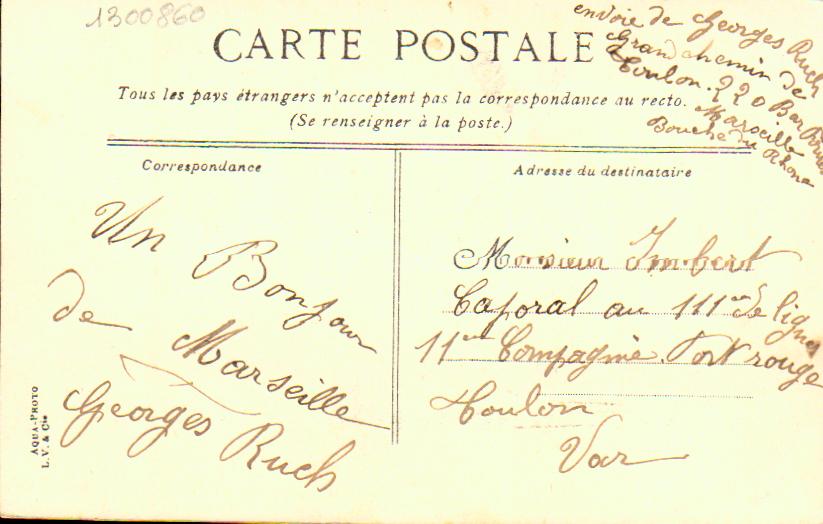 1300860
CARTE POSTALE
Tous les pays étrangers n'acceptent pas la correspondance au recto.
(Se renseigner à la poste.)
envoie de Georges Ruch
Grand chemin de
Toulon. 220 Bar
Marseille
Bouche du Rhone
Correspondance
Un Bonjour
de Marseille
Georges Ruch
AQUA-PHOTO
L. V. & Cie
Adresse du destinataire
Monsieur Imbert
Caporal au 111me de ligne
11me Compagnie. Fort rouge
Toulon
Var